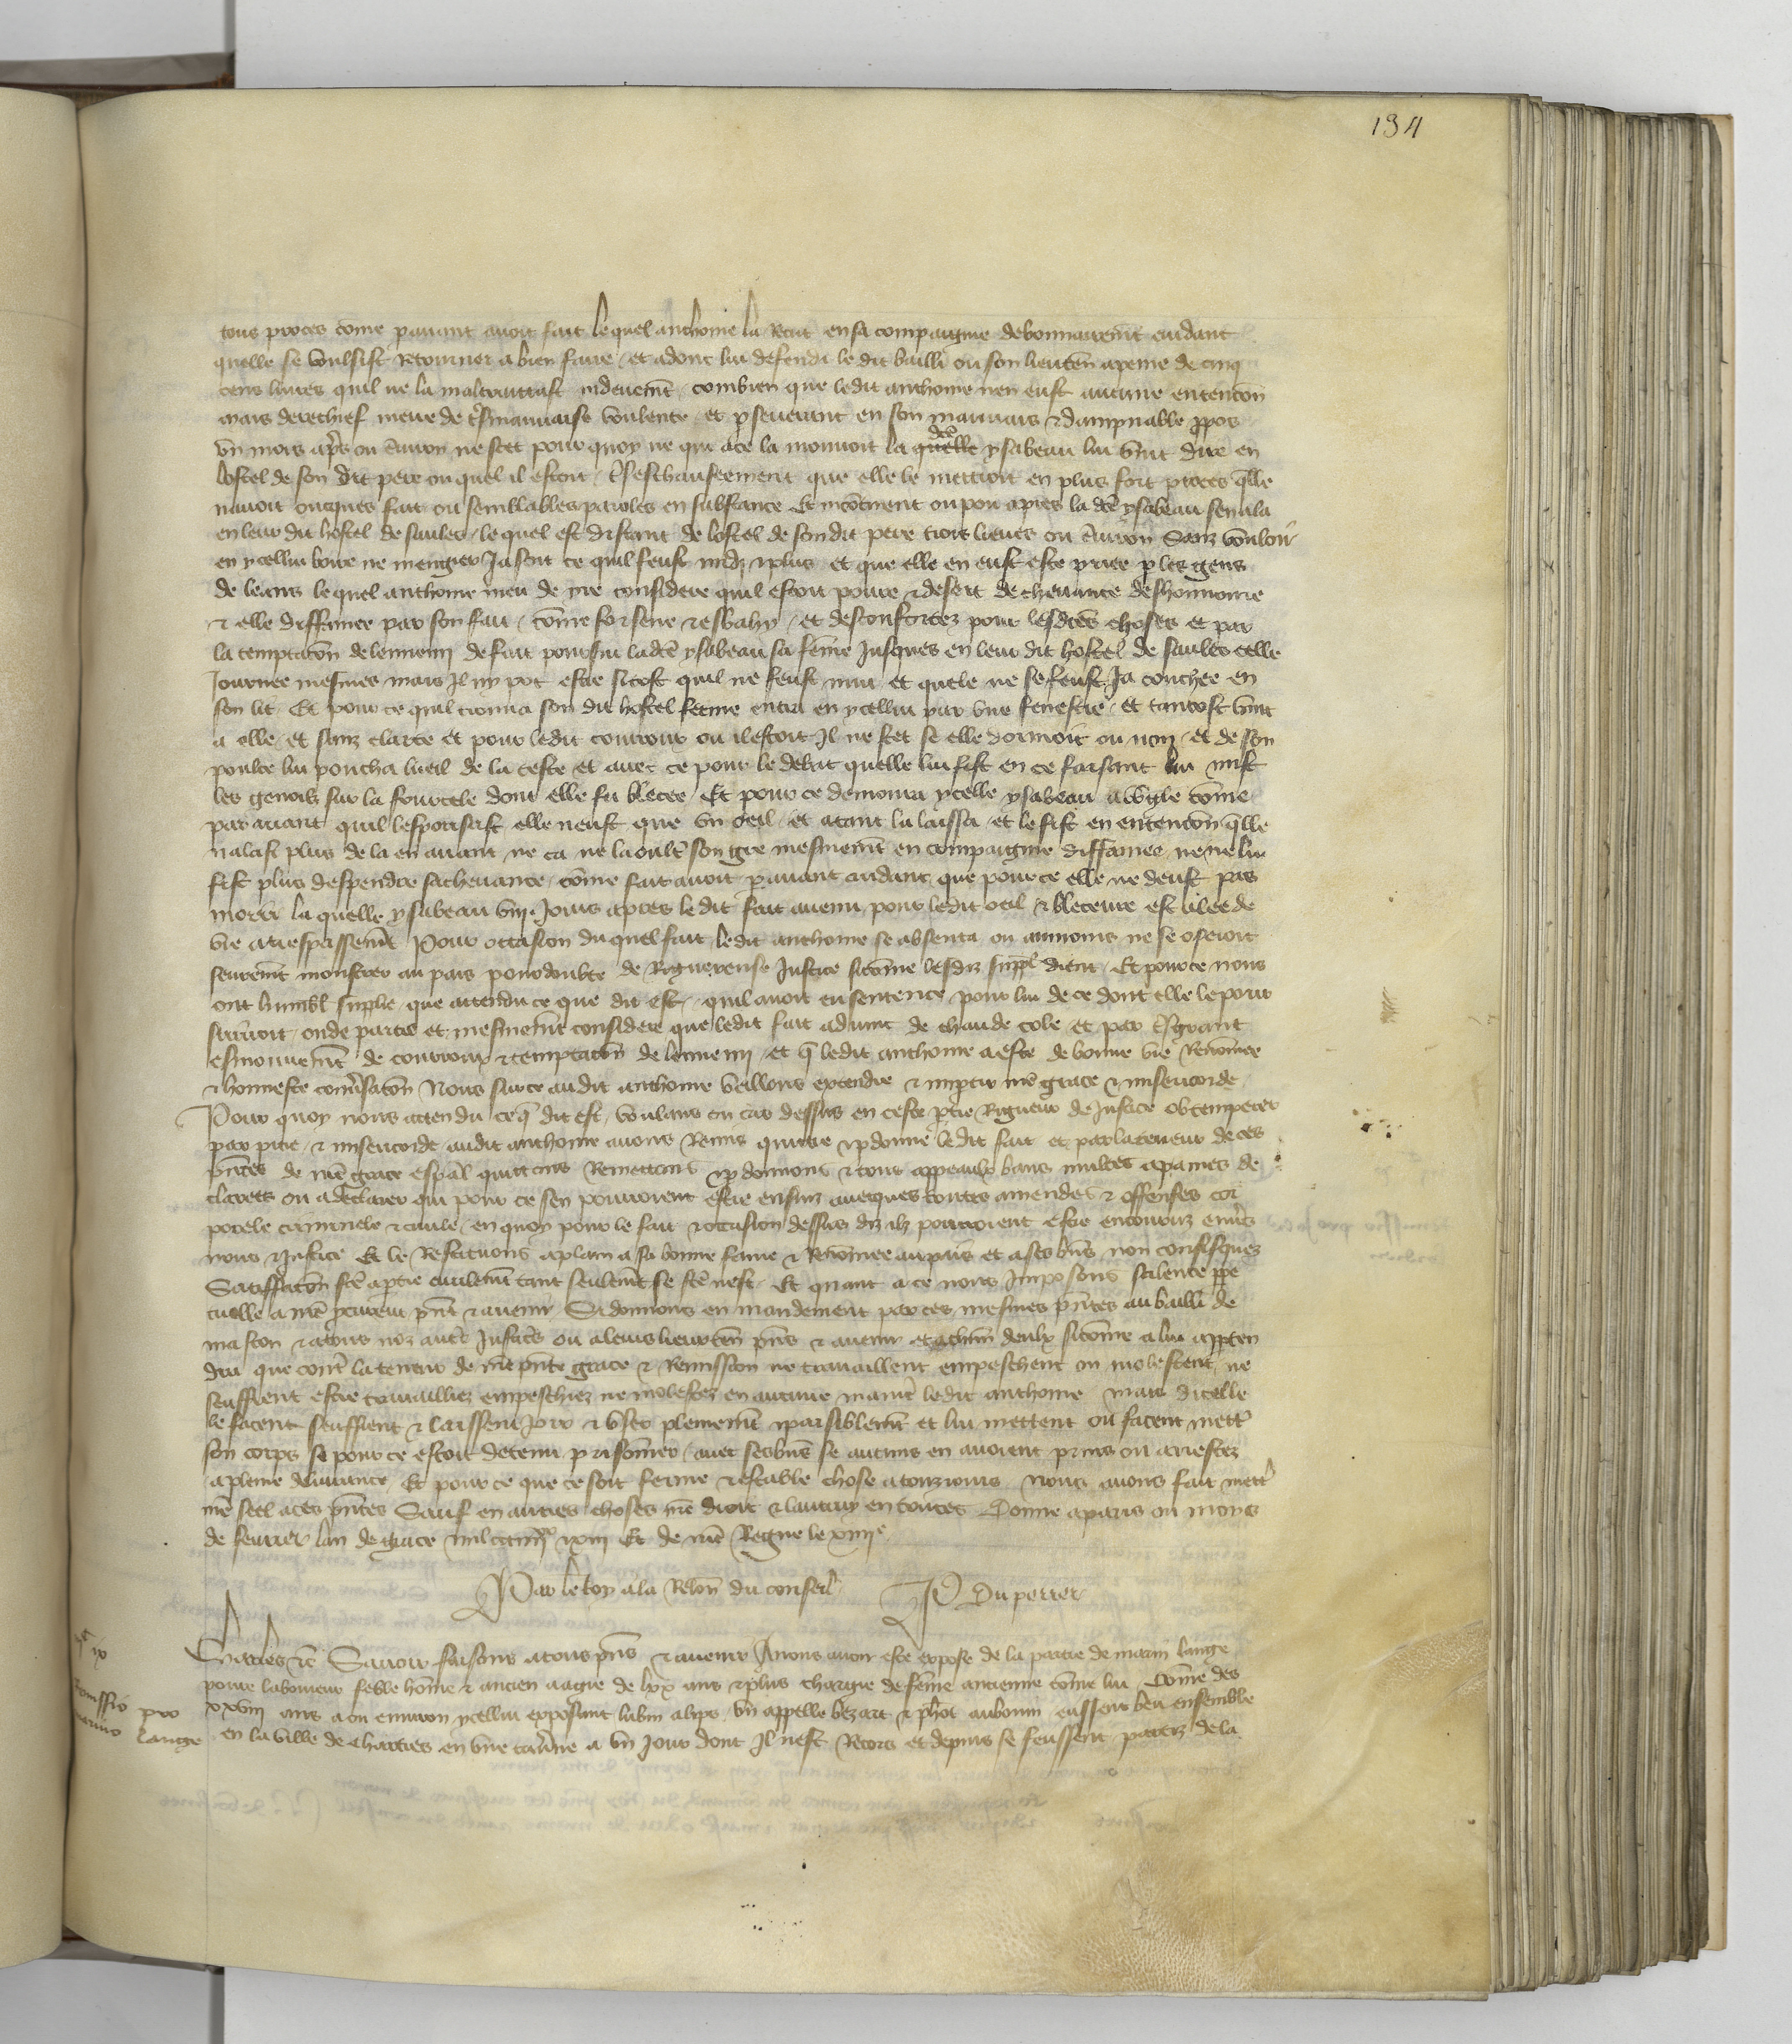 134
tous proces come pauant auoit fait le quel anthoine la Recut en sa compaignie debonnairemt cuidant
quelle se voulsist Retourner a bien faire et adonc lui defendi le dit bailli ou son lieuten a peine de cinq
cens liures quil ne la maltraittast indeuemt combien que le dit anthoine nen eust aucune entencon
mais derechief meue de tsmauuaise voulente et pseuerant en son mauuais & dampnable ppos
vn mois aps ou enuiron ne scet pour quoy ne qui a ce la mouuoit la quelle dce ysabeau lui vint dire en
lostel de son dit pere ou quel il estoit eschaufeement que elle le mettroit en plus fort proces qlle
nauoit onques fait ou semblables paroles en substance Et incontinent ou pou apres la dce ysabeau sen ala
en leur dit hostel de saules le quel est distant de lostel de son dit pere trois lieues ou enuiron Sanz vouloir
en ycellui boire ne mengier Ja soit ce quil feust midz & plus et que elle en eust este priee p les gens
de leans le quel anthoine meu de yre considere quil estoit poure & desert de cheuance deshonnoure
& elle diffamee par son fait come forsene & esbahy et desconfortez pour lesdces choses et par
la temptacon de lennemi de fait poursui ladce ysabeau sa feme Jusques en leur dit hostel de saules celle
Journee mesmes mais Il ny pot estre si tost quil ne feust nuit et quele ne se feust Ja couchee en
son lit Et pour ce quil trouua son dit hostel ferme entra en ycellui par vne fenestre et tantost vint
a elle et sanz clarte et pour ledit courroux ou il estoit Il ne scet se elle dormoit ou non et de son
poulce lui poucha lueil de la teste et auec ce pour le debat quelle lui fist en ce faisant lui mist
les genoilz sur la fourcele dont elle fu blecee Et pour ce demoura ycelle ysabeau auugle come
par auant quil lespousast elle neust que vn oeil et atant la laissa et le fist en entencon qlle
nalast plus de la en auant ne ca ne la oult son gre mesmemt en compaignie diffamee ne ne lui
fist plus despendre sa cheuance come fait auoit pauant cuidant que pour ce elle ne deust pas
morir la quelle ysabeau viij Jours apres le dit fait auenu pour ledit oeil & bleceure est alee de
vie a trespassemt Pour occasion du quel fait ledit anthoine se absenta ou aumoins ne se oseroit
seuremt monstrer au pais pour doubte de Riguereuse Justice sicome lesdiz suppl dient Et pour ce nous
ont humbl supplie que attendu ce que dit est quil auoit eu sentence pour lui de ce dont elle le poursuiuoit
onde partie et mesmemt considere que ledit fait aduint de chaude cole et par tsgrant
esmouuemt de courroux & temptacon de lennemi et q ledit anthoine a este de bonne vie Renomee
& honneste conusacon Nous sur ce audit anthoine veillons extendre & impartir nre grace & misericorde
Pour quoy nous attendu ce q dit est voulans ou cas dessus en ceste ptie Rigueur de Justice obtemperer
par pitie & misericorde audit anthoine auons Remis quitte & pdonne le dit fait et par la teneur de ces
pntes de nre grace espal quittons Remettons & pdonnons & tous appeaulx bans multes & paines de
clarees ou a declarer qui pour ce sen pourroient estre ensuiz auecques toutes amendes & offenses cor
porele criminele & ciuile en quoy pour le fait & occasion dessus diz ilz pourroient estre encouruz enuers
nous & Justice Et le Restituons a plain a sa bonne fame & Renomee au pais et a ses biens non confisquez
Satisffacon fce a ptie ciuilemt tant seulemt se fce nest Et quant a ce nous Imposons scilence ppe
tuelle a nre procureur pnt & auenir Si donnons en mandement par ces mesmes pntes au bailli de
mascon & a tous noz autres Justiciers ou a leurs lieuxten pns & auenir et a chun deulx sicome a lui appten
dra que contre la teneur de nre pnte grace & Remission ne trauaillent empeschent ou molestent ne
seuffrent estre trauailliez empeschiez ne molestez en aucune maniere ledit anthoine mais dicelle
le facent seuffrent & laissent Joir & vser plainemt & paisiblemt et lui mettent ou facent mettre
son corps se pour ce estoit detenu prisonnier auec ses biens se aucuns en auoient prins ou arrestez
a pleine deliurance Et pour ce que ce soit ferme & estable chose a tousiours nous auons fait mettre
nre seel a ces pntes Sauf en autres choses nre droit & lautruy en toutes Donne a paris ou mois
de feurier lan de grace mil cciiijxx xiij Et de nre Regne le xiiije
Par le Roy a la Relon du conseil P Du perrier
Charles &c Sauoir faisons a tous pns & auenir A nous auoir este expose de la partie de marin lange
poure laboureur feble home & ancien aagie de lxx ans & plus chargie de feme ancienne come lui Come des
xxviij ans a ou enuiron ycellui exposant lubin alips vn appelle bezart & phot aubouin eussent beu ensemble
en la ville de chartres en vne tauerne a vn Jour dont Il nest Recors et depuis se feussent partiz de la
Remissio pro
marino lange